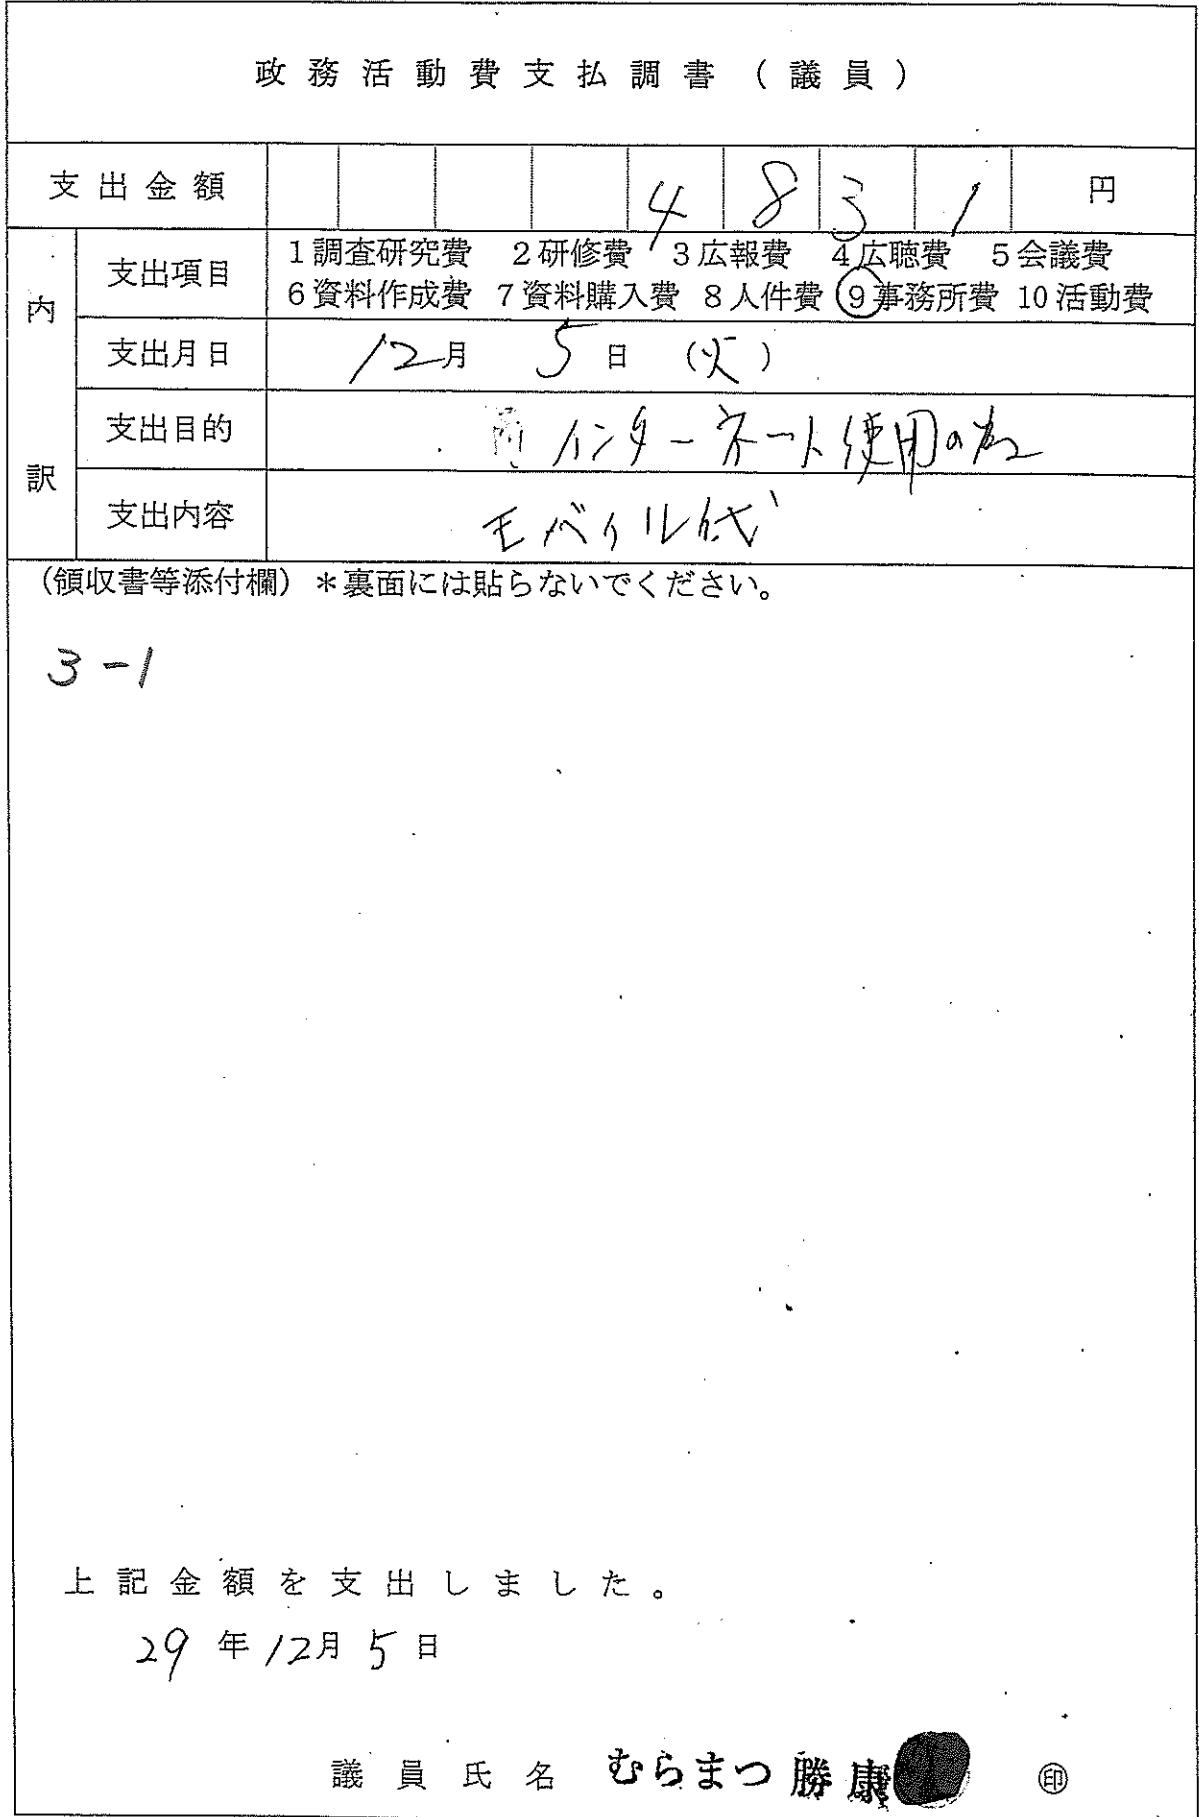 政務活動費支払調書（議員）
支出金額 4831円
内訳
支出項目 1調査研究費 2研修費 3広報費 4広聴費 5会議費
6資料作成費 7資料購入費 8人件費 ⑨事務所費 10活動費
支出月日 12月5日（火）
支出目的 インターネット使用の為
支出内容 モバイル代
（領収書等添付欄）＊裏面には貼らないでください。
3-1
上記金額を支出しました。
29年12月5日
議員氏名 むらまつ勝康 ㊞